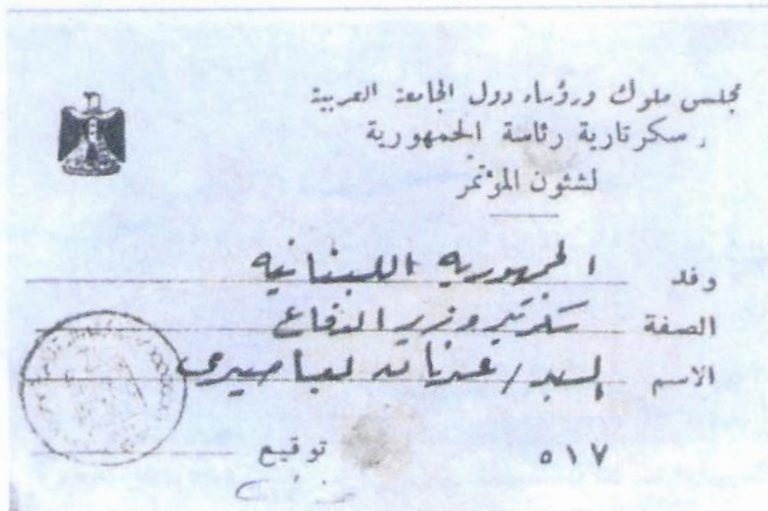 مجلس ملوك ورؤساء دول الجامعة العربية
سكرتارية رئاسة الجمهورية
لشئون المؤتمر
وفد الجمهورية اللبنانية
الصفة سكرتير وزير الدفاع
الاسم السيد / عدنان لعباصيري
٥١٧ توقيع